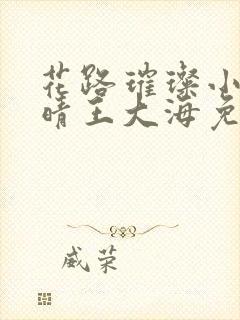 花路璀璨小
晴王大海免
威荣